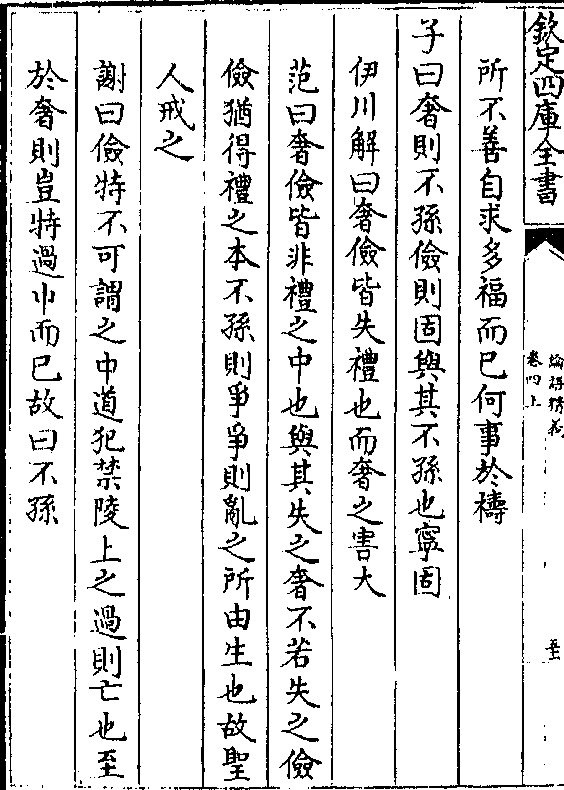 欽定四庫全書
論語精義
卷四上
至
所不善自求多福而已何事於禱
子曰奢則不孫儉則固與其不孫也寧固
伊川解曰奢儉皆失禮也而奢之害大
范曰奢儉皆非禮之中也與其失之奢不若失之儉
儉猶得禮之本不孫則爭爭則亂之所由生也故聖
人戒之
謝曰儉特不可謂之中道犯禁陵上之過則亡也至
於奢則豈特過巾而已故曰不孫